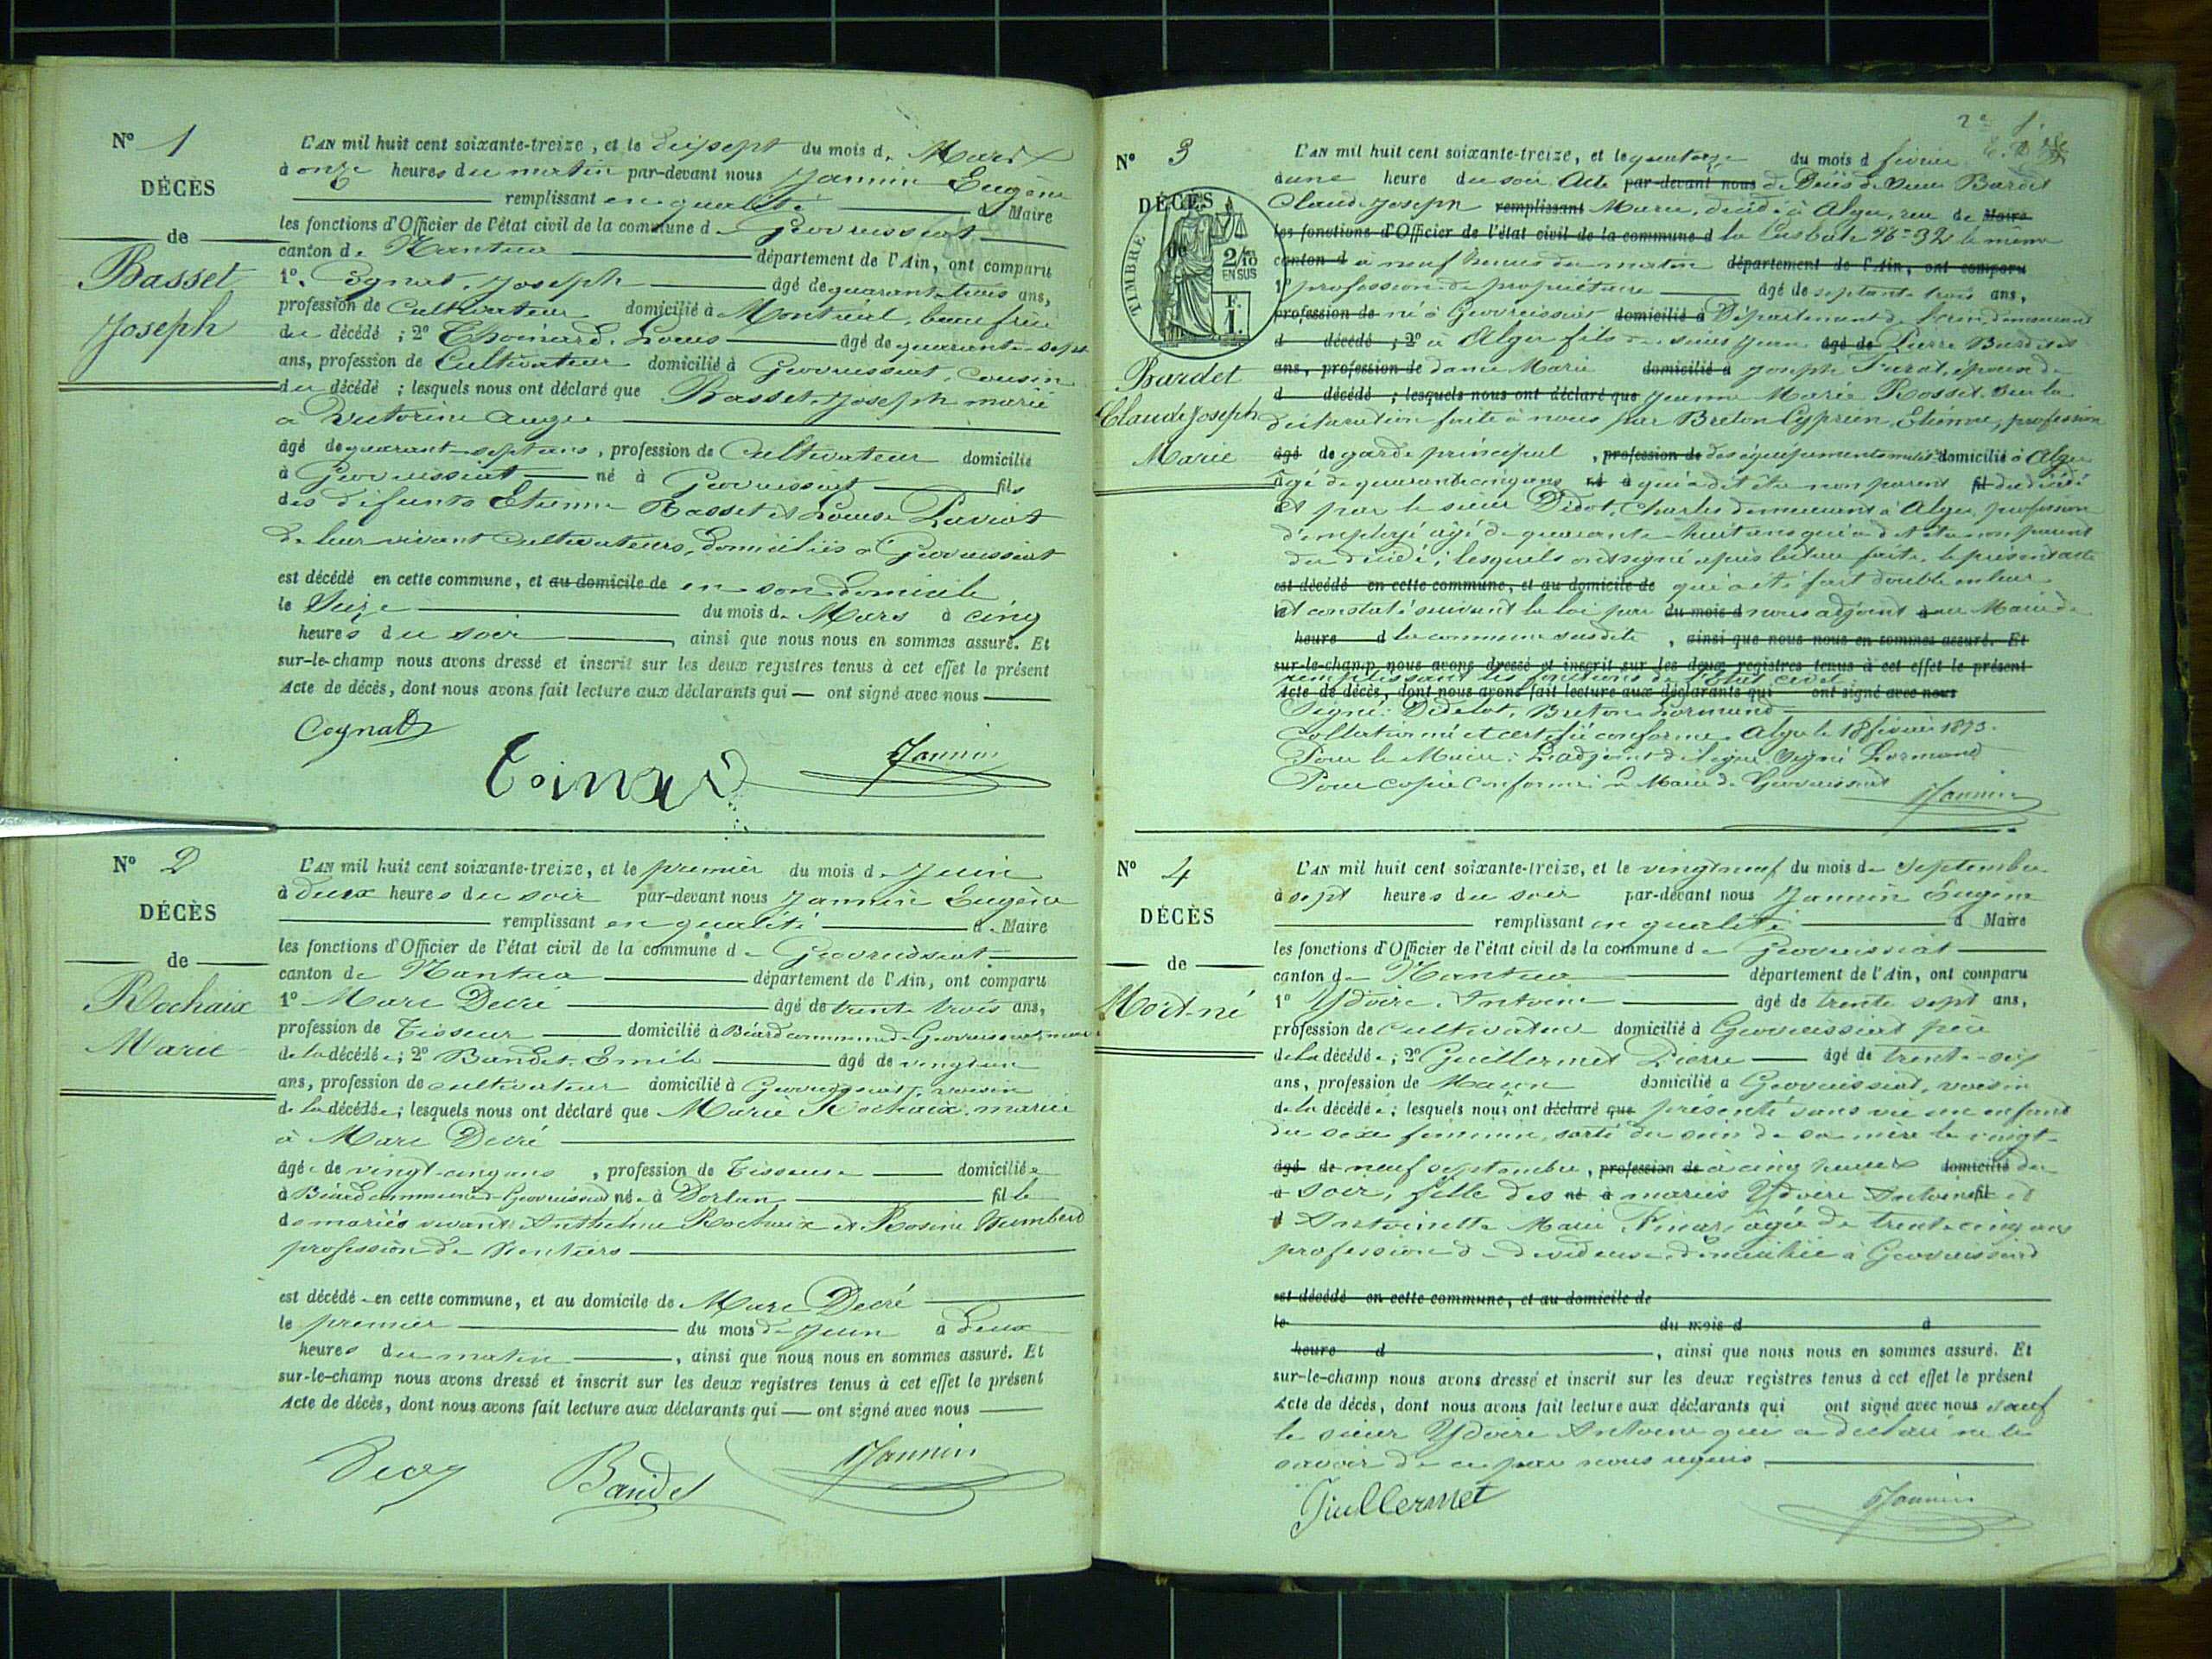 N° 1
DÉCÈS
de
Basset
Joseph
L'AN mil huit cent soixante-treize, et le dixsept du mois de Mars
à onze heures du matin par-devant nous Jannin Eugène
remplissant en qualité de Maire
les fonctions d'Officier de l'état civil de la commune de Géovreissiat
canton de Nantua département de l'Ain, ont comparu
1° Cognat Joseph âgé de quarante trois ans,
profession de Cultivateur domicilié à Montréal, beau frère
du décédé ; 2° Louis âgé de quarante sept
ans, profession de Cultivateur domicilié à Géovreissiat, Cousin
du décédé ; lesquels nous ont déclaré que Basset Joseph marié
à Victorine Auger
âgé de quarante sept ans, profession de Cultivateur domicilié
à Géovreissiat né à Géovreissiat fils
des défunts Etienne Basset et Louise
de leur vivant Cultivateurs, domiciliés à Géovreissiat
est décédé en cette commune, et au domicile de en son domicile
le Seize du mois de Mars à cinq
heures du soir, ainsi que nous nous en sommes assuré. Et
sur-le-champ nous avons dressé et inscrit sur les deux registres tenus à cet effet le présent
Acte de décès, dont nous avons fait lecture aux déclarants qui ont signé avec nous
Cognat
Jannin
N° 2
DÉCÈS
de
Rochaix
Marie
L'AN mil huit cent soixante-treize, et le premier du mois de Juin
à deux heures du soir par-devant nous Jannin Eugène
remplissant en qualité de Maire
les fonctions d'Officier de l'état civil de la commune de Géovreissiat
canton de Nantua département de l'Ain, ont comparu
1° Marc Decré âgé de trente trois ans,
profession de Tisseur domicilié à Béard commune de Géovreissiat, mari
de la décédée ; 2° Baudet Emile âgé de vingt un
ans, profession de cultivateur domicilié à Géovreissiat, voisin
de la décédée ; lesquels nous ont déclaré que Marie Rochaix mariée
à Marc Decré
âgée de vingt-cinq ans, profession de Tisseuse domiciliée
à Béard commune de Géovreissiat née à Dortan fille
de mariés vivants Anthelme Rochaix et Rosine Humbert
profession de Rentiers
est décédée en cette commune, et au domicile de Marc Decré
le premier du mois de Juin à deux
heures du matin, ainsi que nous nous en sommes assuré. Et
sur-le-champ nous avons dressé et inscrit sur les deux registres tenus à cet effet le présent
Acte de décès, dont nous avons fait lecture aux déclarants qui ont signé avec nous
Baudet
Jannin
N° 3
DÉCÈS
de
TIMBRE
2/10
EN SUS
F.
1.
Bardet
Claude Joseph
Marie
L'AN mil huit cent soixante-treize, et le quatorze du mois d février
à une heure du soir Acte par-devant nous de Décès de Sieur Bardet
Claude Joseph remplissant Marie, décédé à Alger, rue de Maire
les fonctions d'Officier de l'état civil de la commune d la Casbah N° 32 le même
canton d à neuf heures du matin département de l'Ain, ont comparu
1° profession de propriétaire âgé de septante trois ans,
profession de né à Géovreissiat domicilié à Département de l'ain, demeurant
d décédé ; 2° à Alger fils de sieurs Jean âgé de Pierre Bardet et
ans, profession de dame Marie domicilié à Joseph époux de
d décédé ; lesquels nous ont déclaré que Jeanne Marie Rosset. Sur la
déclaration faite à nous par Breton Cyprien, Etienne, profession
âgé de garde principal, profession de des équipements domicilié à Alger
âgé de quarante cinq ans né à qui a dit être non parent fil du décédé
et par le sieur Didot, Charles demeurant à Alger, profession
d'employé âgé de quarante huit ans qui a dit être non parent
du décédé ; lesquels ont signé après lecture faite le présent acte
est décédé en cette commune, et au domicile de qui a été fait double en leur
et constaté suivant la loi par du mois d nous adjoint à au Maire de
heure d la commune susdite, ainsi que nous nous en sommes assuré. Et
sur-le-champ nous avons dressé et inscrit sur les deux registres tenus à cet effet le présent
remplissant les fonctions de l'Etat civil
Acte de décès, dont nous avons fait lecture aux déclarants qui ont signé avec nous
Signé : Didelot, Breton Lormand
Collationné et certifié conforme Alger le 18 février 1873.
Pour le Maire : L'adjoint délégué Signé Lormand
Pour copie conforme Le Maire de Géovreissiat
Jannin
N° 4
DÉCÈS
de
Mort-né
L'AN mil huit cent soixante-treize, et le vingt neuf du mois de Septembre
à sept heures du soir par-devant nous Jannin Eugène
remplissant en qualité d Maire
les fonctions d'Officier de l'état civil de la commune de Géovreissiat
canton de Nantua département de l'Ain, ont comparu
1° Ydoire Antoine âgé de trente sept ans,
profession de Cultivateur domicilié à Géovreissiat père
de la décédée ; 2° Guillermet Pierre âgé de trente-six
ans, profession de Maçon domicilié à Géovreissiat, voisin
de la décédée ; lesquels nous ont déclaré que présenté sans vie un enfant
du sexe féminin, sorti du sein de sa mère le vingt-
âgé de neuf septembre, profession de à cinq heures domicilié du
à soir, fille des né à mariés Ydoire Antoine fil et
d Antoinette Marie âgée de trente cinq ans
profession de dévideuse, domiciliée à Géovreissiat
est décédé en cette commune, et au domicile de
le du mois d à
heure d, ainsi que nous nous en sommes assuré. Et
sur-le-champ nous avons dressé et inscrit sur les deux registres tenus à cet effet le présent
Acte de décès, dont nous avons fait lecture aux déclarants qui ont signé avec nous sauf
le sieur Ydoire Antoine qui a déclaré ne le
savoir de ce par nous requis
Guillermet
Jannin